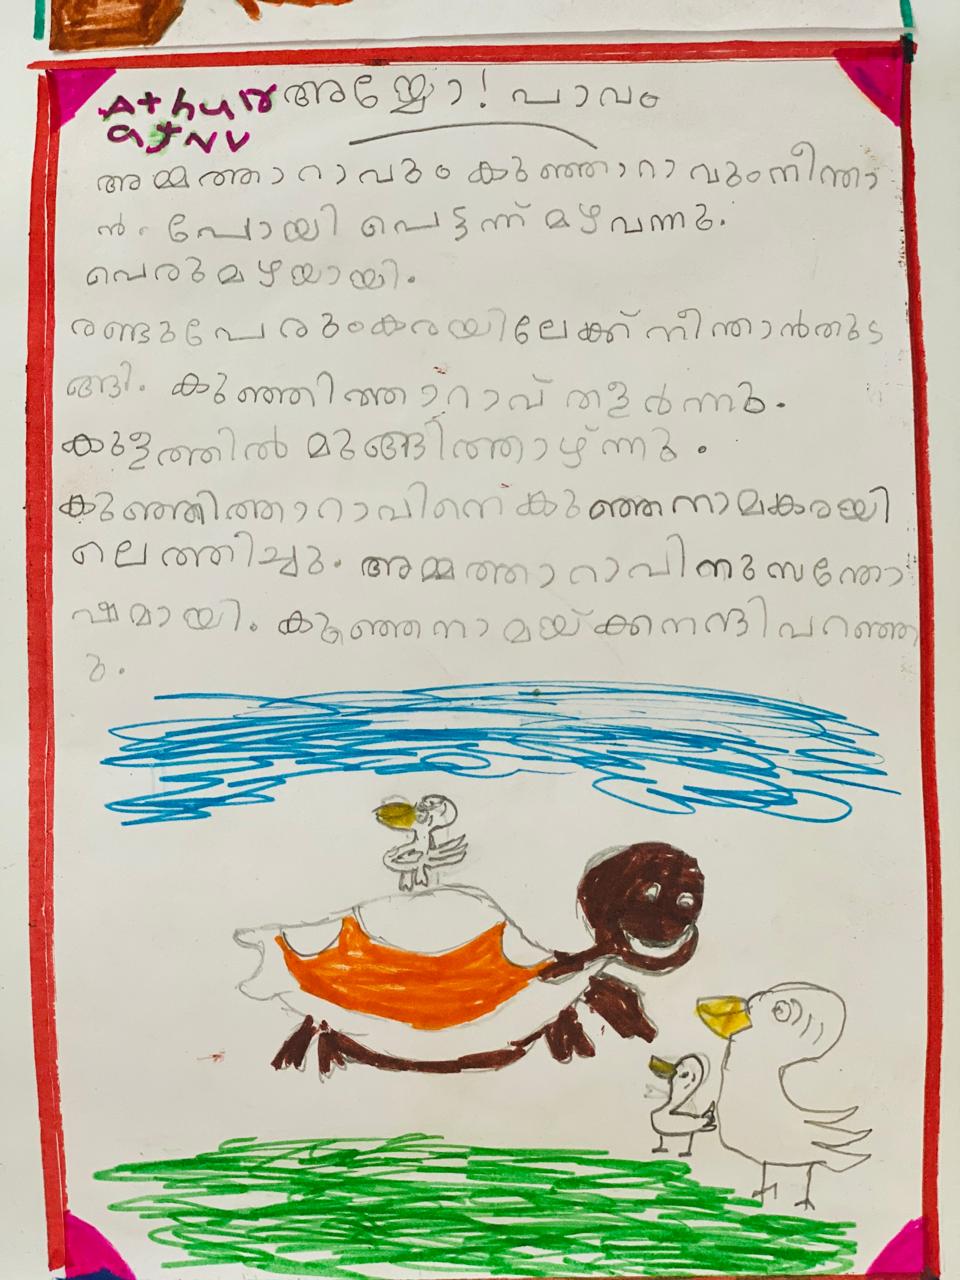 Athur അയ്യോ! പാവം
അമ്മത്താറാവും കുഞ്ഞാറാവും നീന്താ
ൻ. പോയി പെട്ടന്ന് മഴ വന്നു.
പെരുമഴയായി.
രണ്ടുപേരും കരയിലേക്ക് നീന്താൻ തുട
ങ്ങി. കുഞ്ഞിത്താറാവ് തളർന്നു.
കുളത്തിൽ മുങ്ങിത്താഴ്ന്നു.
കുഞ്ഞിത്താറാവിനെ കുഞ്ഞനാമകരയി
ലെത്തിച്ചു. അമ്മത്താറാവിനു സന്തോ
ഷമായി. കുഞ്ഞനാമയ്ക്ക നന്ദി പറഞ്ഞ
ു.